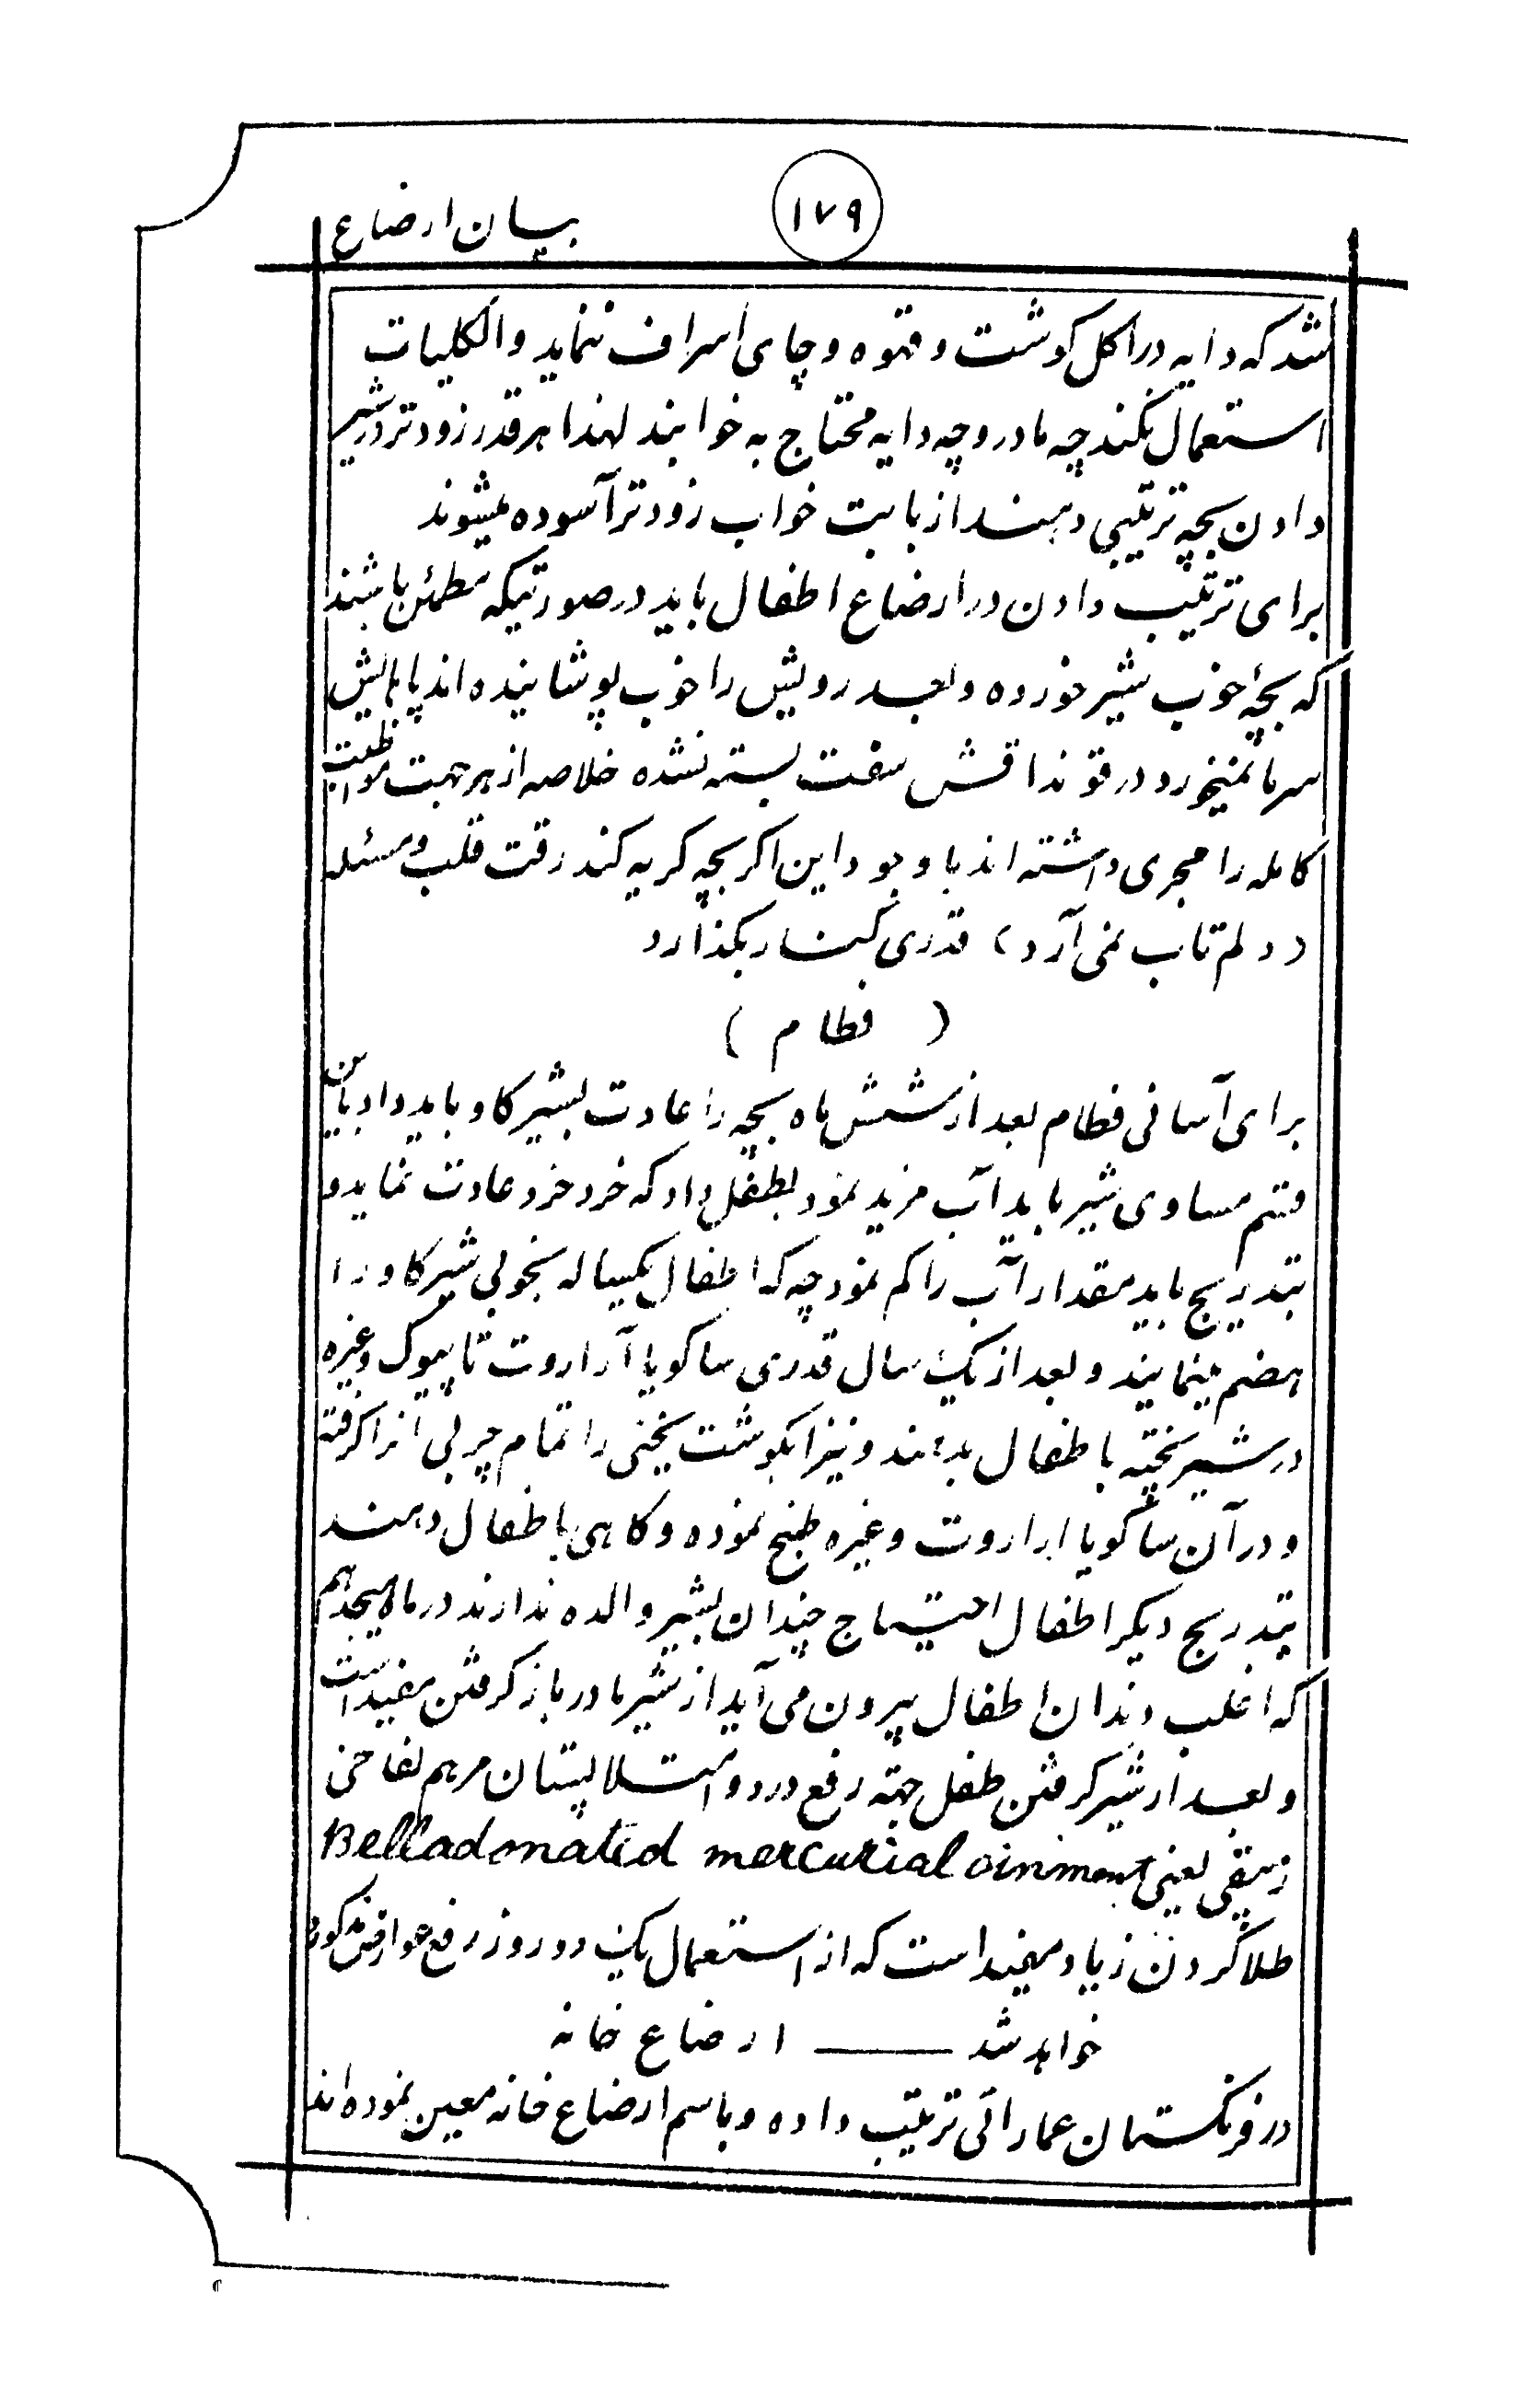 ۱۷۹
بیان ارضاع
شد که دایه در اکل کوشت و قهوه و چای اسراف ننماید و الکلیات
استعمال نکند چه مادر و چه دایه محتاج به خوابند لهذا هر قدر زودتر در شیر
دادن بچه ترتیبی دهند از بابت خواب زودتر آسوده میشوند
برای ترتیب دادن در ارضاع اطفال باید در صورتیکه مطمئن باشند
که بچهٔ خوب شیر خورده و بعد رویش را خوب پوشانیده اند پاهایش
سرما نمیخورد در قونداقش سفت بسته نشده خلاصه از هر جهت مواظبت
کامله را مجری داشته اند با وجود این اکر بچه کریه کند رقت قلب و مسئله
(دلم تاب نمی آرد) قدری کنار بکذارد
( فطام )
برای آسانی فطام بعد از شش ماه بچه را عادت بشیر کاو باید داد باین
قسم مساوی شیر باید آب مزید نمود بطفل داد که خرد خرد عادت نماید و
بتدریج باید مقدار آب را کم نمود چه که اطفال یکساله بخوبی شیر کاو را
هضم مینمایند و بعد از یک سال قدری ساکو یا آراروت تاپیوک وغیره
در شیر پخته باطفال بدهند و نیز ابکوشت یخنی را تمام چربی انرا کرفته
و در آن ساکو یا اراروت وغیره طبخ نموده و کاهی باطفال دهند
بتدریج دیکر اطفال احتیاج چندان بشیر والده ندارند در ماه هیجدهم
که اغلب دندان اطفال بیرون می آید از شیر مادر باز کرفتن مفید است
و بعد از شیر کرفتن طفل جهة رفع درد و امتلا پستان مرهم لفاحی
زیبقی یعنی Belladonated mercurial oinment
طلا کردن زیاد مفید است که از استعمال یک دو روز رفع عوارض مذکوره
خواهد شد ـــــ ارضاع خانه
در فرنکستان عماراتی ترتیب داده و باسم ارضاع خانه معین نموده اند